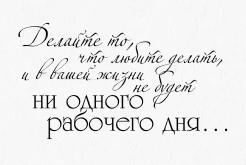 Делайте то,
что любите делать,
и в вашей жизни
не будет
ни одного
рабочего дня...